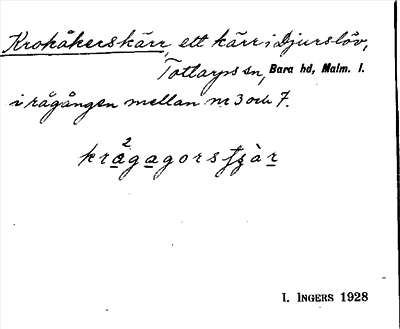 Krokåkerskärr, ett kärr i Djurslöv,
Tottarps sn, Bara hd, Malm. l.
i rågången mellan nr 3 och 7.
I. INGERS 1928